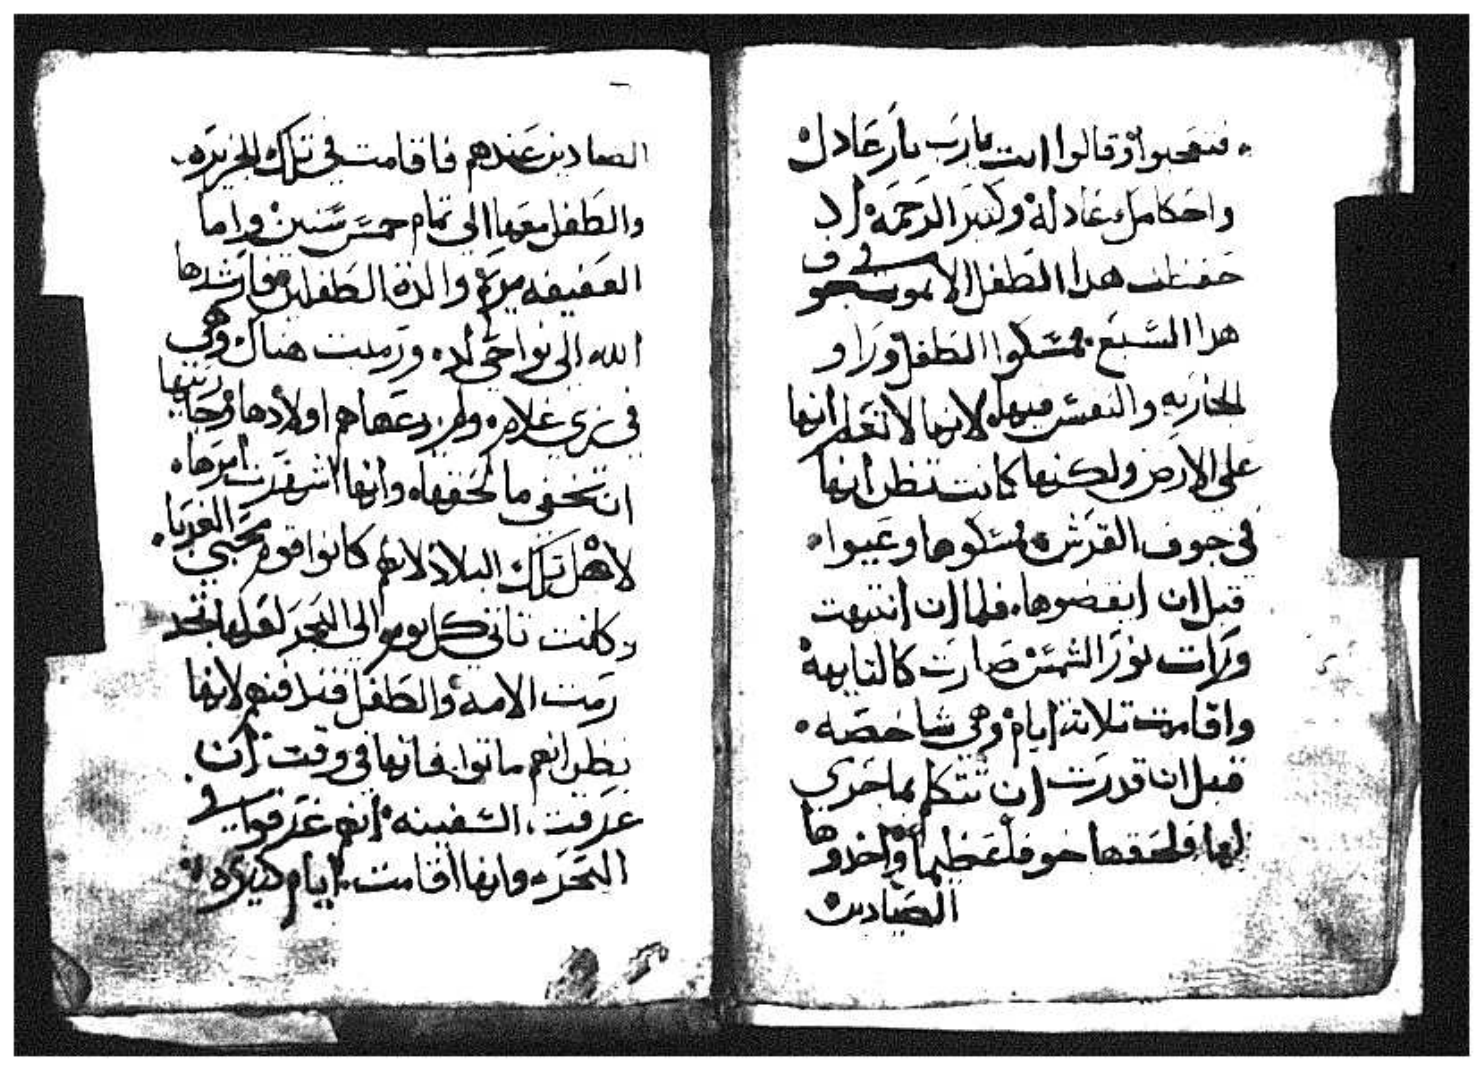 فتعجبوا وقالوا انت يارب بار عادل
واحكامك عادله وكتير الرحمه لان
حفظت هدا الطفل الا يموت في جوف
هدا السبع فمسكوا الطفل وراو
الجاريه والنفس فيها لانها لا تعلم انها
على الارض ولكنها كانت تظن انها
في جوف القرش فمسكوها وعبوا
قبل ان يفضوها فلما ان انتبهت
ورات نور الشمس صارت كالتايهه
واقامت تلاتة ايام وهي شاخصه
قبل ان قدرت ان تتكلم بما جري
لها فلحقها خوف عظيم واخدوها
الصيادين
الصيادين عندهم فاقامت في تلك الجزيره
والطفل معها الى تمام خمس سنين واما
العفيفه مريم والدة الطفلين فارشدها
الله الى نواحي لده ورميت هناك وهي
في زي غلام ولم ردعها هم اولادها وحاربتها
ان تخفي ما لحقها وانها اشهرت امرها
لاهل تلك البلاد لانهم كانوا قوم محبي الغربا
وكانت تاتي كل يوم الى البحر لعلها تجد
رمت الامه والطفل فتدفنهم لانها
تظن انهم ماتوا فانها في وقت ان
غرقت السفينه انهم غرقوا في
البحر وانها اقامت ايام كتيره